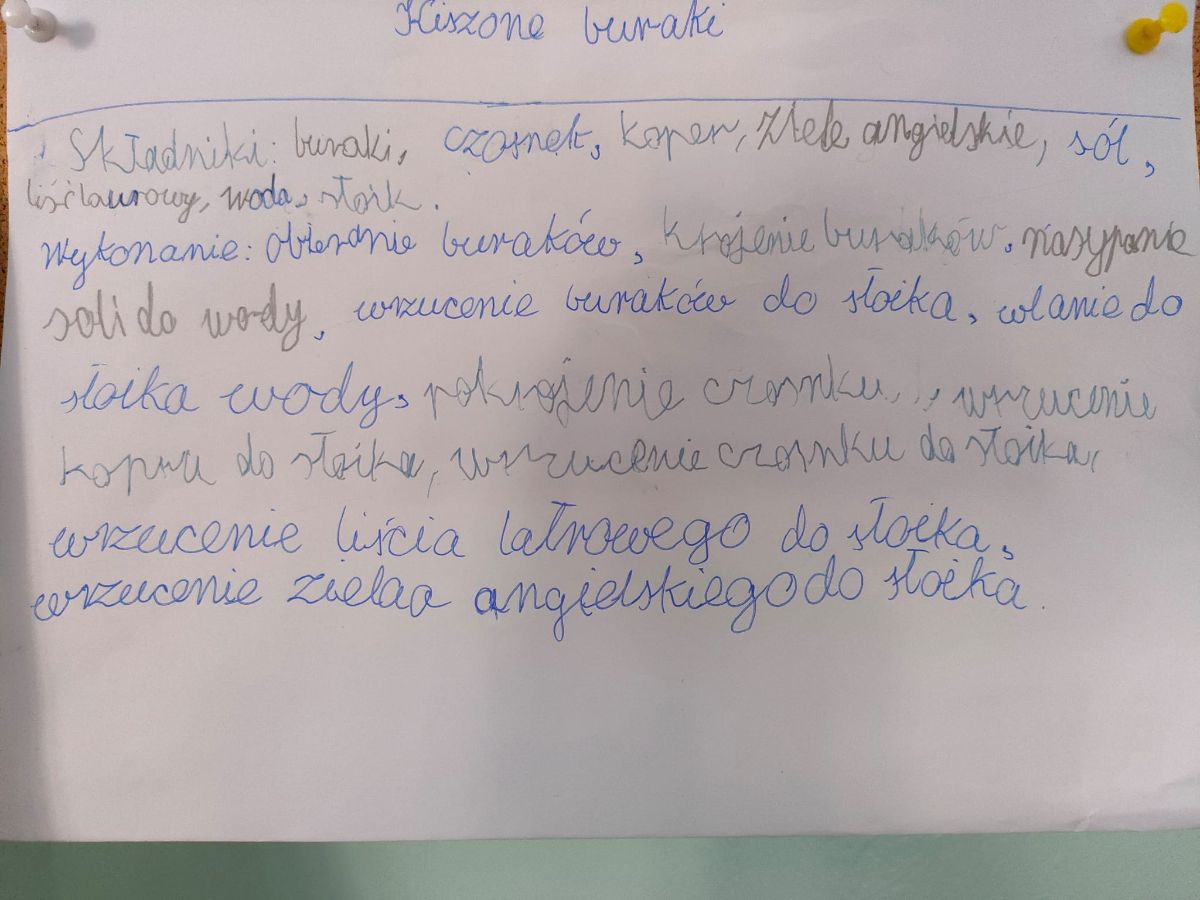 Kiszone buraki
Składniki: buraki, czosnek, koper, ziele angielskie, sól,
liść laurowy, woda, słoik.
Wykonanie: Obieranie buraków, krojenie buraków, nasypanie
soli do wody, wrzucenie buraków do słoika, wlanie do
słoika wody, pokrojenie czosnku, wrzucenie
kopru do słoika, wrzucenie czosnku do słoika,
wrzucenie liścia latrowego do słoika,
wrzucenie zielaa angielskiego do słoika.